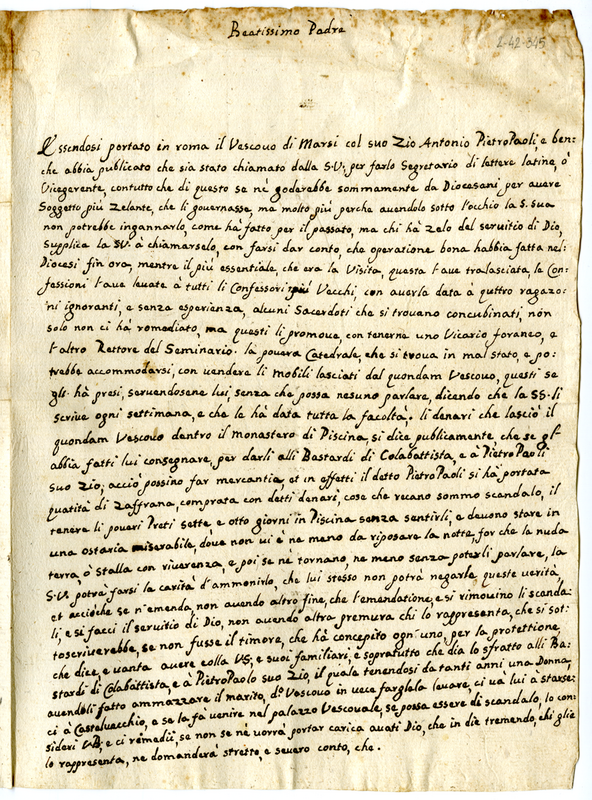 Beatissimo Padre
2-42-345
Essendosi portato in roma il Vescouo di Marsi col suo Zio Antonio PietroPaoli, e ben:
che abbia publicato che sia stato chiamato dalla S.V. per farlo Segretario di lettere latine, ò
Vicegerente, contutto che di questo se nè goderebbe sommamente da Diocesani per auere
Soggetto più Zelante, che li gouernasse, ma molto più perche auendolo sotto l'occhio la S. sua
non potrebbe ingannarlo come hà fatto per il passato, ma chi hà zelo del seruitio di Dio,
supplica la SV. à chiamarselo, con farsi dar conto, che operatione bona habbia fatta nel:
Diocesi fin ora, mentre il più essentiale, che era la Visita, questa l'aue tralasciata, le Con:
fessioni l'aue leuate à tutti li Confessori più Vecchi, con auerla data à quttro ragazo:
ni ignoranti, e senza esperienza, alcuni Sacerdoti che si trouano concubinati, nòn
solo non ci hà romediato, ma questi li promoue, con tenerne uno Vicario foraneo, e
l'altro Rettore del Seminario. la pouera Catedrale, che si troua in mal stato, e po:
trebbe accommodarsi, con vendere li mobili lasciati dal quondam Vescouo, questi se
gli hà presi, seruendosene lui senza che possa nesuno parlare, dicendo che la SS. li
scriue ogni settimana, e che le hà data tutta la facoltà, li denari che lasciò il
quondam Vescouo dentro il monastero di Piscina, si dice publicamente che se gl'
abbia fatti lui consegnare, per darli alli Bastardi di Colabattista, e à PietroPaoli
suo Zio; acciò possino far mercantie, et in effetti il detto PietroPaoli si hà portata
quatità di Zaffrana, comprata con detti denari, cose che recano sommo scandalo, il
tenere li poueri Preti sette e otto giorni in Piscina senza sentirli, e deuono stare in
una ostaria miserabile, doue non ui è ne meno da riposare la notte, for che la nuda
terra, ò stalla con riuerenza, e poi se nè tornano, ne meno senza poterli parlare, la
S.V. potrà farsi la carità d'ammonirlo, che lui stesso non potrà negarle queste verità,
et acciòche se n'emenda, non auendo altro fine, che l'emendatione, e si rimouino li scanda:
li, e si facci il seruitio di Dio, non auendo altra premura chi lo rappresenta, che si sot:
toscriuerebbe, se non fusse il timore, che hà concepito ogn'uno, per la protettione
che dice, e uanta auere colla VS, e suoi familiari, e sopratutto che dia lo sfratto alli Ba:
stardi di Colabattista, e à PietroPaolo suo Zio, il quale tenendosi da tanti anni una Donna,
auendoli fatto ammazzare il marito, do Vescouo in uece fargliela leuare, ci uà lui à starse:
ci à Casteluecchio, e se la fà uenire nel palazzo Vescouale, se possa essere di scandalo, lo con:
sideri VB, e ci rèmedij, se non se nè uorrà portar carica auati Dio, che in die tremendo, chi glie
lo rappresenta, ne domanderà stretto, e seuero conto, che.